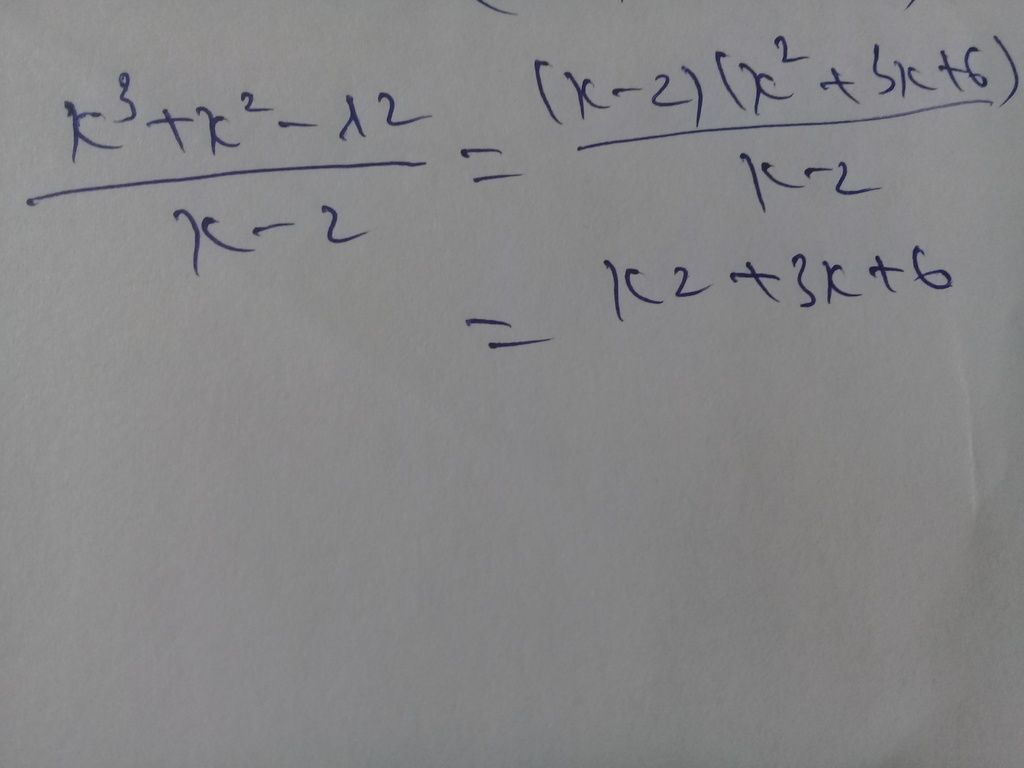 x³ + x² - 12 / x - 2 = (x-2)(x² + 3x + 6) / x - 2
= x2 + 3x + 6